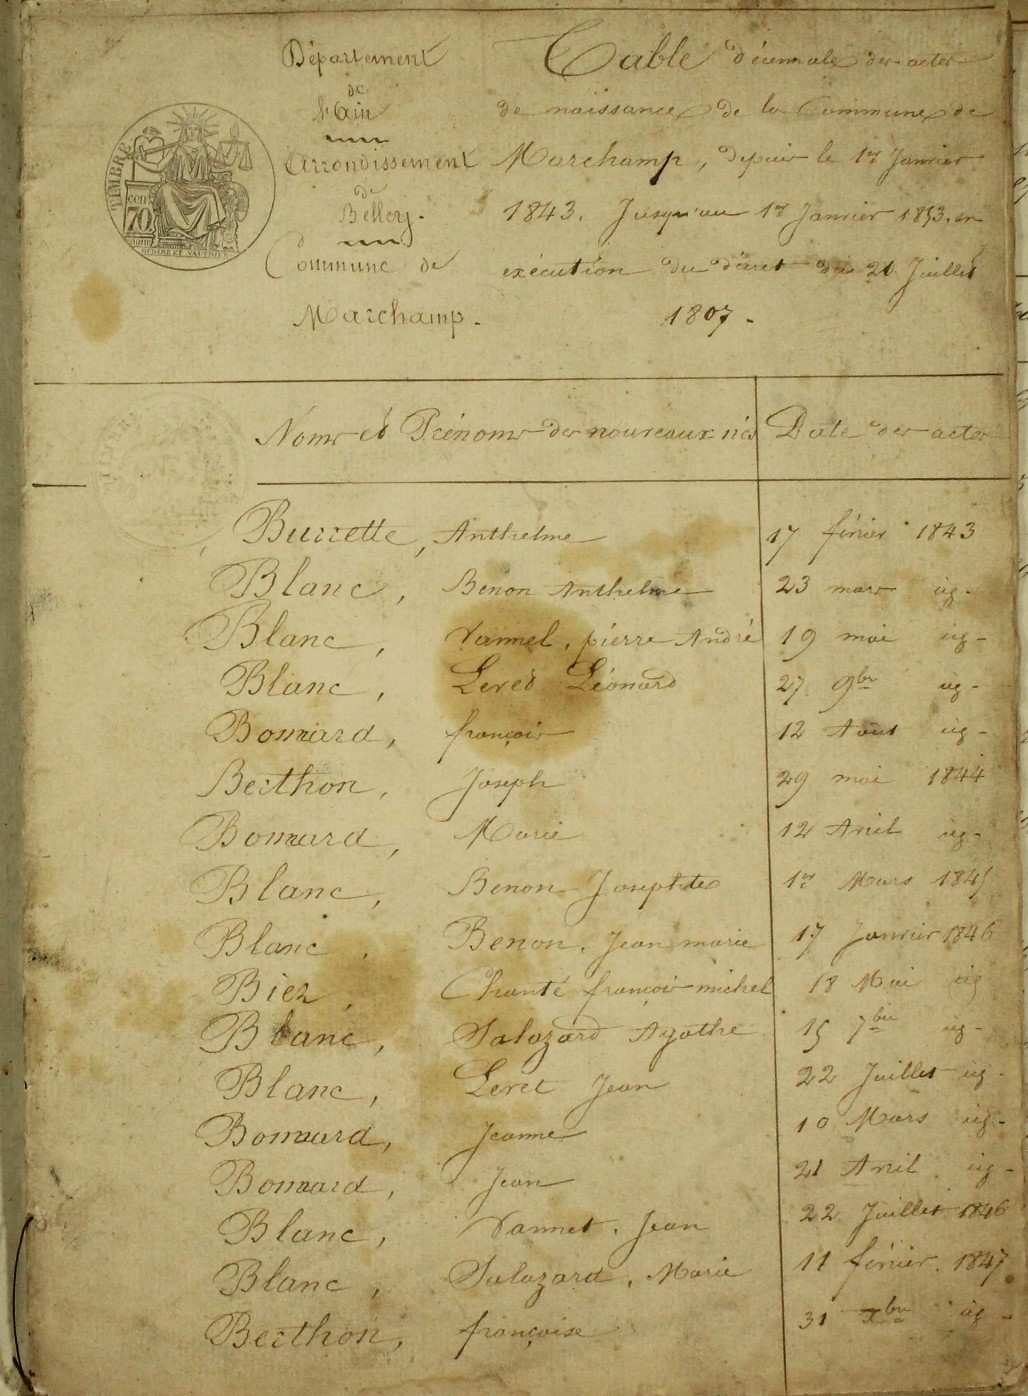 Département
de
l'Ain
Arrondissement
de
Belley.
Commune de
Marchamp.
Table décennale des actes
de naissances de la Commune de
Marchamp, depuis le 1er Janvier
1843. Jusqu'au 1er Janvier 1853. en
exécution du décret du 20 Juillet
1807.
TIMBRE
70
Noms et Prénoms des nouveaux nés Date des actes
Burrette, Anthelme 17 février 1843
Blanc, Benon Anthelme 23 mars id.
Blanc, Vannet, pierre André 19 mai id.
Blanc, Leret Léonard 27 9bre id.
Bomard, françois 12 Août id.
Berthon, Joseph 29 mai 1844
Bomard, Marie 12 Avril id.
Blanc, Benon Josephte 1er Mars 1845
Blanc, Benon, Jean marie 17 Janvier 1846
Biez, Chanté françois michel 18 Mai id
Blanc, Salazard Agathe 15 7bre id.
Blanc, Leret Jean 22 Juillet id.
Bomard, Jeanne 10 Mars id.
Bomard, Jean 21 Avril id.
Blanc, Vannet, Jean 22 Juillet 1846
Blanc, Salazard, Marie 11 février 1847
Berthon, françoise 31 xbre id.